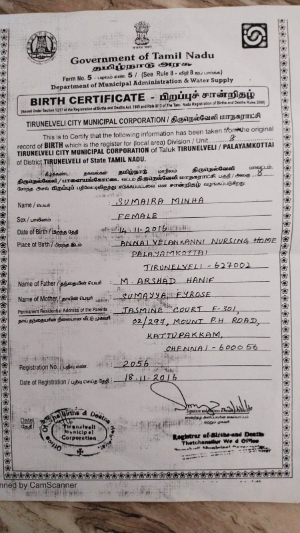 Government of Tamil Nadu
தமிழ்நாடு அரசு
Form No. 5 - படிவம் எண் 5 / (See Rule 8 - விதி 8
Department of Municipal Administration & Water Supply
BIRTH CERTIFICATE - பிறப்புச் சான்றிதழ்
TIRUNELVELI CITY MUNICIPAL CORPORATION / திருநெல்வேலி மாநகராட்சி
This is to Certify that the following information has been taken from the original
record of BIRTH which is the register for (local area) Division / Unit 8
TIRUNELVELI CITY MUNICIPAL CORPORATION of Taluk TIRUNELVELI / PALAYAMKOTTAI
of District TIRUNELVELI of State TAMIL NADU.
Name / பெயர் SUMAIRA MINHA
Sex / பாலினம் FEMALE
Date of Birth / பிறந்த தேதி 14.11.2016
Place of Birth / பிறந்த இடம் ANNAI VELANKANNI NURSING HOME
PALAYAMKOTTAI
TIRUNELVELI - 627002
Name of Father / தந்தையின் பெயர் M. ARSHAD HANIF
Name of Mother / தாயின் பெயர் SUMAYYA FYROSE
Permanent Residential Address of the Parents JASMINE COURT F-301,
02/297, MOUNT P.H ROAD,
KATTUPAKKAM,
CHENNAI - 600056
Registration No. / பதிவு எண் 2056
Date of Registration / பதிவு செய்த தேதி 18.11.2016
Date /
தேதி
Tirunelveli
Municipal
Corporation
Registrar of Births and Deaths
Thatchanallur Wd 8 Office
Tirunelveli Municipal
CamScanner